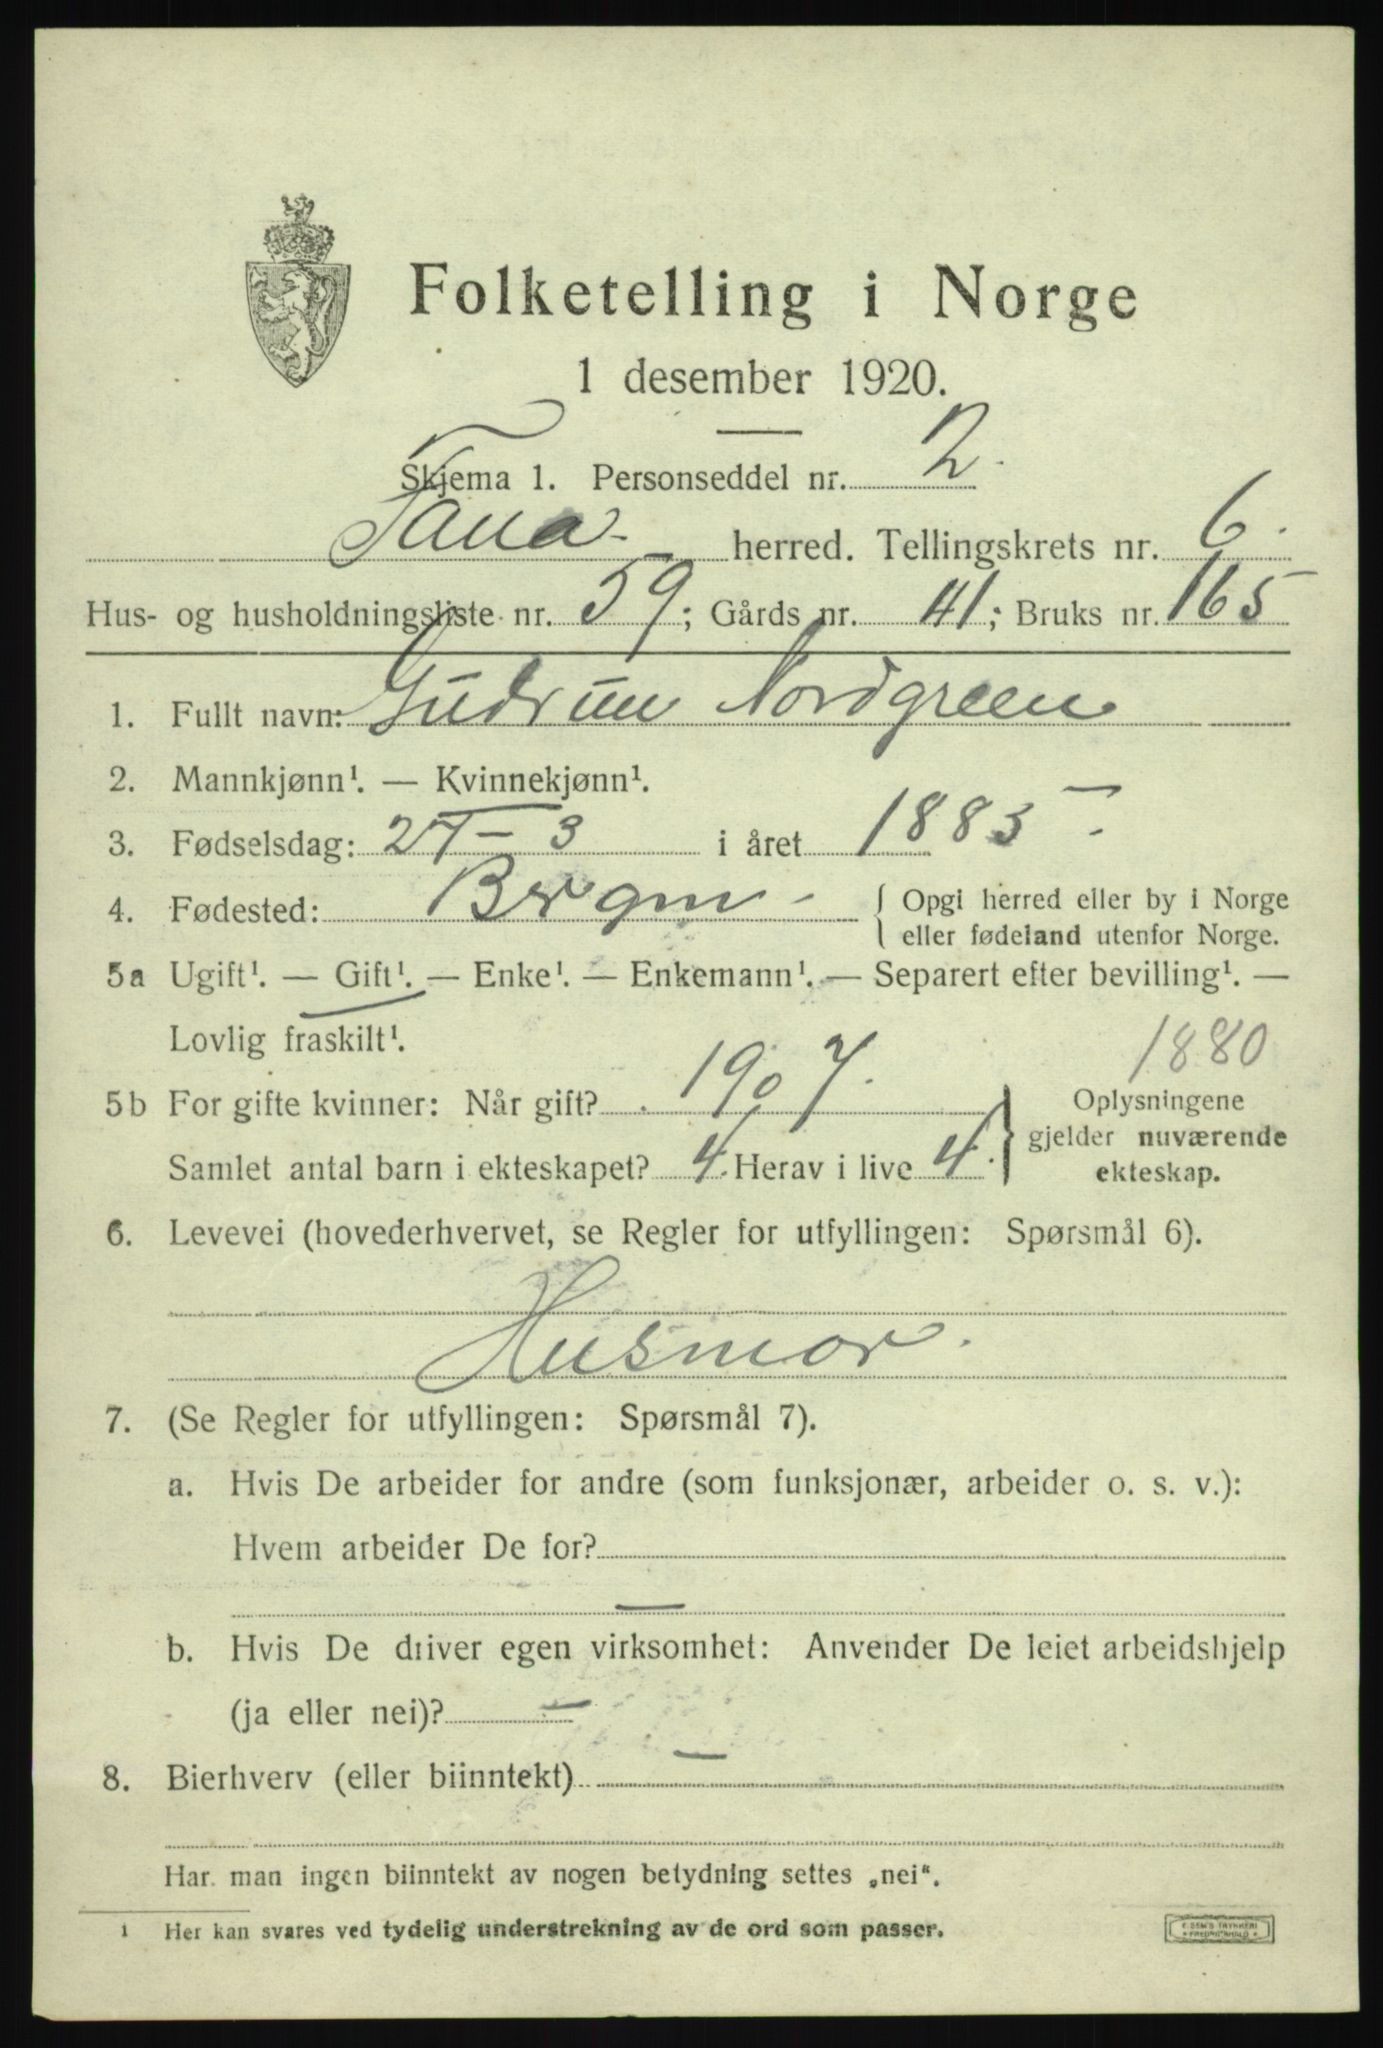 Folketelling i Norge
1 desember 1920.
Skjema 1. Personseddel nr. 2.
Fana herred. Tellingskrets nr. 6.
Hus- og husholdningsliste nr. 59; Gårds nr. 41; Bruks nr. 165
1. Fullt navn: Gudrun Nordgreen
2. Mannkjønn¹. — Kvinnekjønn¹.
3. Fødselsdag: 27 – 3 i året 1885
4. Fødested: Bergen – { Opgi herred eller by i Norge
eller fødeland utenfor Norge.
5a Ugift¹. — Gift¹. — Enke¹. — Enkemann¹. — Separert efter bevilling¹. —
Lovlig fraskilt¹.
1880
5b For gifte kvinner: Når gift? 1907. } Oplysningene
gjelder nuværende
Samlet antal barn i ekteskapet? 4. Herav i live 4. ekteskap.
6. Levevei (hovederhvervet, se Regler for utfyllingen: Spørsmål 6).
Husmor.
7. (Se Regler for utfyllingen: Spørsmål 7).
a. Hvis De arbeider for andre (som funksjonær, arbeider o. s. v.):
Hvem arbeider De for?
—
b. Hvis De driver egen virksomhet: Anvender De leiet arbeidshjelp
(ja eller nei)? —
8. Bierhverv (eller biinntekt) —
Har man ingen biinntekt av nogen betydning settes „nei“.
1 Her kan svares ved tydelig understrekning av de ord som passer.
E. SEM'S TRYKKERI
FREDRIKSHALD